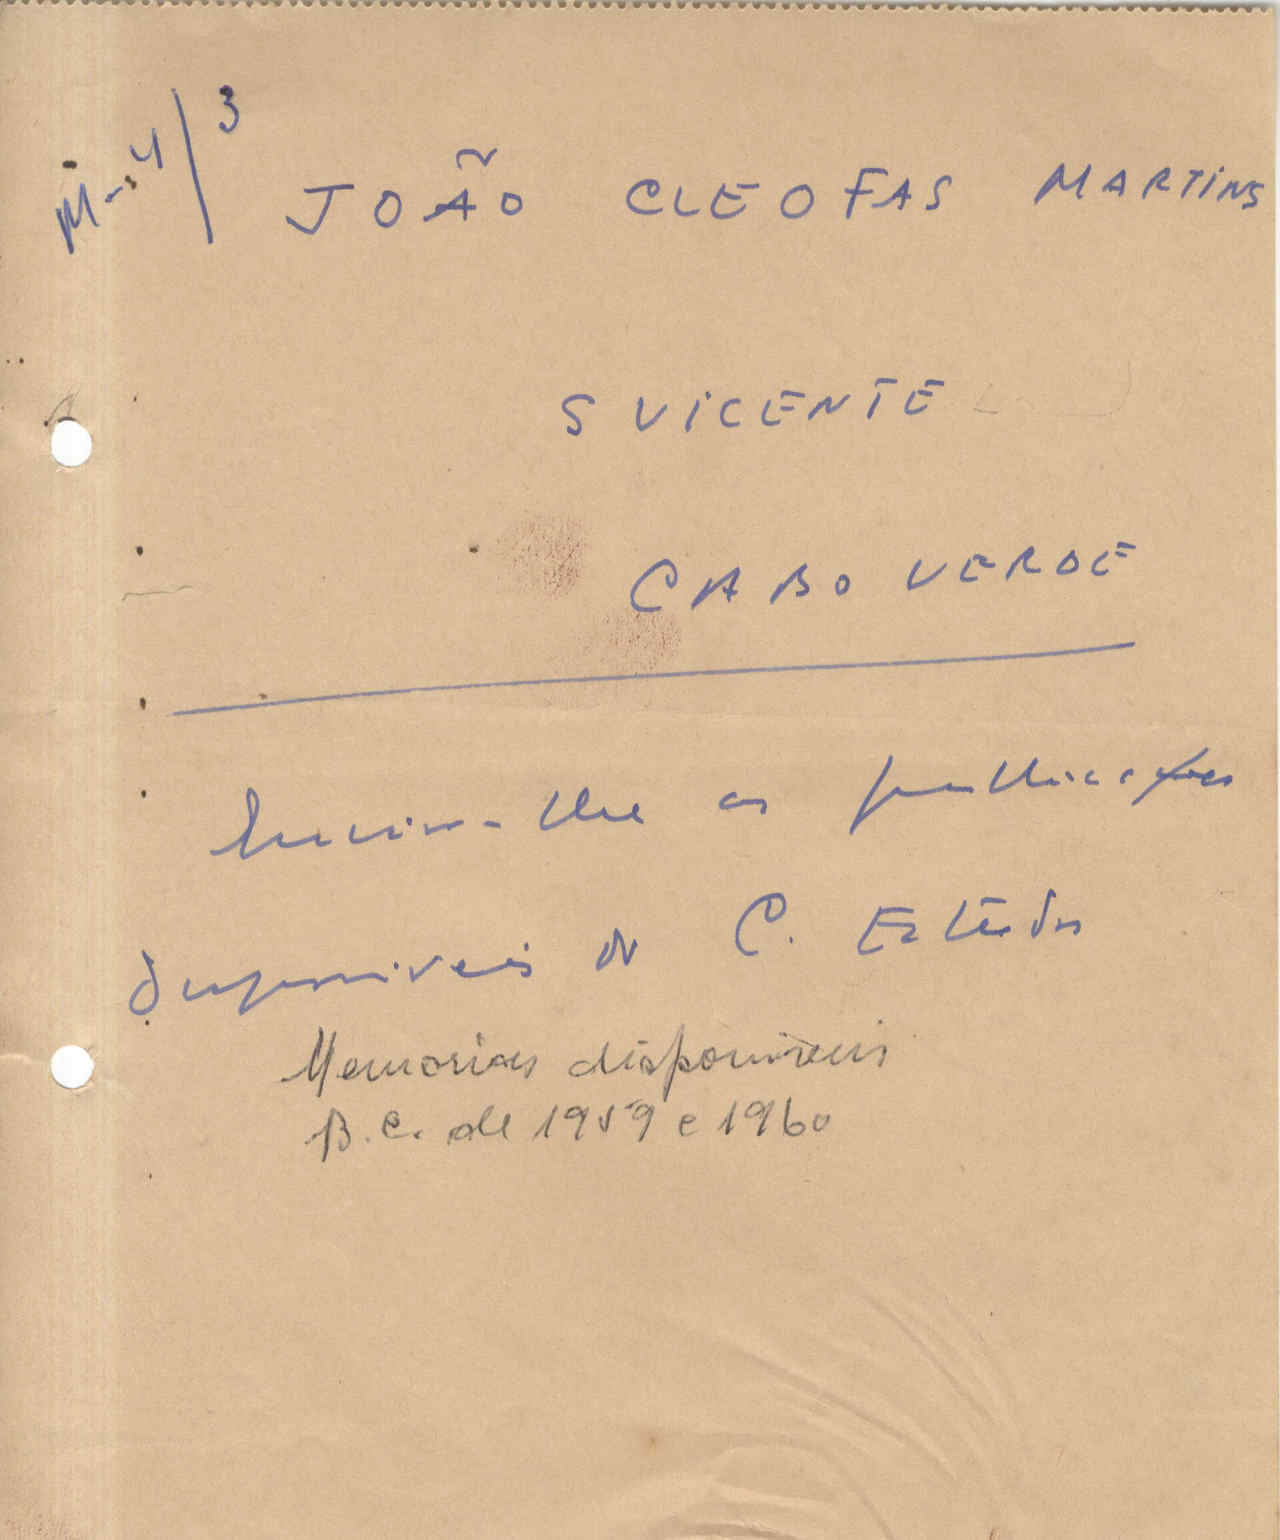 M-4/3
JOÃO CLEOFAS MARTINS
S VICENTE
CABO VERDE
Enviar-lhe as publicações
disponíveis do C. Estudos
Memorias disponiveis
B.C. de 1959 e 1960